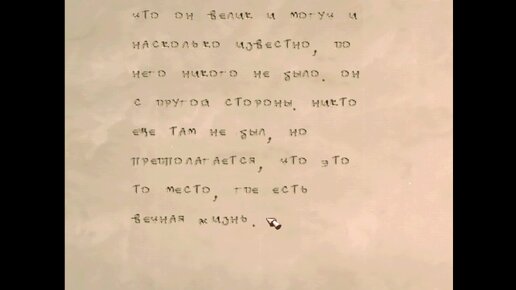 что он велик и могуч и
насколько известно, до
него никого не было. он
с другой стороны. никто
еще там не был, но
предполагается, что это
то место, где есть
вечная жизнь.